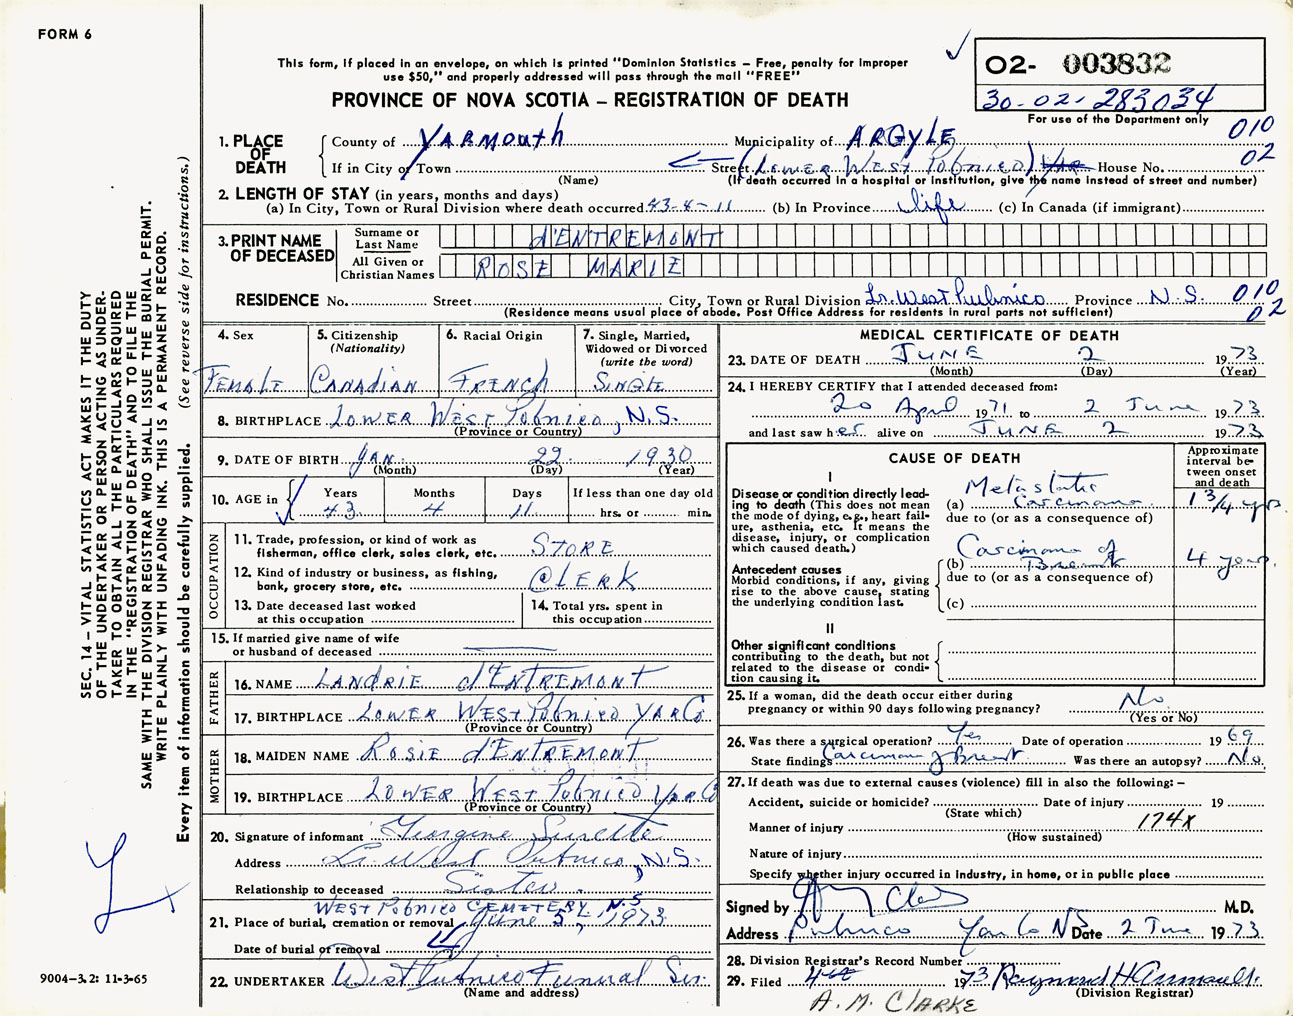 FORM 6
This form, if placed in an envelope, on which is printed "Dominion Statistics – Free, penalty for improper
use $50," and properly addressed will pass through the mail "FREE"
PROVINCE OF NOVA SCOTIA – REGISTRATION OF DEATH
02- 003832
30-02-283034
For use of the Department only
010
02
1. PLACE OF DEATH
County of YARMOUTH Municipality of ARGYLE
If in City or Town (Name) Street (LOWER WEST PUBNICO) House No.
(If death occurred in a hospital or institution, give the name instead of street and number)
2. LENGTH OF STAY (in years, months and days)
(a) In City, Town or Rural Division where death occurred 43-4-11 (b) In Province life (c) In Canada (if immigrant)
3. PRINT NAME OF DECEASED
Surname or Last Name d'ENTREMONT
All Given or Christian Names ROSE MARIE
RESIDENCE No. Street City, Town or Rural Division Lr. West Pubnico Province N.S. 010
02
(Residence means usual place of abode. Post Office Address for residents in rural parts not sufficient)
4. Sex FEMALE
5. Citizenship (Nationality) CANADIAN
6. Racial Origin FRENCH
7. Single, Married, Widowed or Divorced (write the word) SINGLE
8. BIRTHPLACE LOWER WEST PUBNICO, N.S.
(Province or Country)
9. DATE OF BIRTH JAN. 22 1930
(Month) (Day) (Year)
10. AGE in Years 43 Months 4 Days 11 If less than one day old hrs. or min.
OCCUPATION
11. Trade, profession, or kind of work as fisherman, office clerk, sales clerk, etc. STORE
12. Kind of industry or business, as fishing, bank, grocery store, etc. CLERK
13. Date deceased last worked at this occupation
14. Total yrs. spent in this occupation
15. If married give name of wife or husband of deceased
FATHER
16. NAME LANDRIE d'ENTREMONT
17. BIRTHPLACE LOWER WEST PUBNICO YAR Co
(Province or Country)
MOTHER
18. MAIDEN NAME ROSIE d'ENTREMONT
19. BIRTHPLACE LOWER WEST PUBNICO YAR Co
(Province or Country)
20. Signature of informant Georgine Surette
Address Lr. West Pubnico, N.S.
Relationship to deceased Sister.
WEST PUBNICO CEMETERY, N.S
21. Place of burial, cremation or removal June 5, 1973
Date of burial or removal
22. UNDERTAKER West Pubnico Funeral Ser.
(Name and address)
MEDICAL CERTIFICATE OF DEATH
23. DATE OF DEATH JUNE 2 1973
(Month) (Day) (Year)
24. I HEREBY CERTIFY that I attended deceased from:
20 April 1971 to 2 June 1973
and last saw her alive on JUNE 2 1973
CAUSE OF DEATH
Approximate interval between onset and death
I
Disease or condition directly leading to death (This does not mean the mode of dying, e.g., heart failure, asthenia, etc. It means the disease, injury, or complication which caused death.)
(a) Metastatic Carcinoma 1 3/4 yrs
due to (or as a consequence of)
Antecedent causes
Morbid conditions, if any, giving rise to the above cause, stating the underlying condition last.
(b) Carcinoma of Breast 4 years
due to (or as a consequence of)
(c)
II
Other significant conditions
contributing to the death, but not related to the disease or condition causing it.
25. If a woman, did the death occur either during pregnancy or within 90 days following pregnancy? No
(Yes or No)
26. Was there a surgical operation? Yes Date of operation 1969
State findings Carcinoma of Breast Was there an autopsy? No.
27. If death was due to external causes (violence) fill in also the following:–
Accident, suicide or homicide? Date of injury 19
(State which)
Manner of injury 174X
(How sustained)
Nature of injury
Specify whether injury occurred in industry, in home, or in public place
Signed by M.D.
Address Pubnico Yar Co NS Date 2 June 1973
28. Division Registrar's Record Number
29. Filed 1973
(Division Registrar)
A. M. CLARKE
SEC. 14 – VITAL STATISTICS ACT MAKES IT THE DUTY
OF THE UNDERTAKER OR PERSON ACTING AS UNDER-
TAKER TO OBTAIN ALL THE PARTICULARS REQUIRED
IN THE "REGISTRATION OF DEATH" AND TO FILE THE
SAME WITH THE DIVISION REGISTRAR WHO SHALL ISSUE THE BURIAL PERMIT.
WRITE PLAINLY WITH UNFADING INK. THIS IS A PERMANENT RECORD.
Every item of information should be carefully supplied. (See reverse side for instructions.)
9004-3.2: 11-3-65